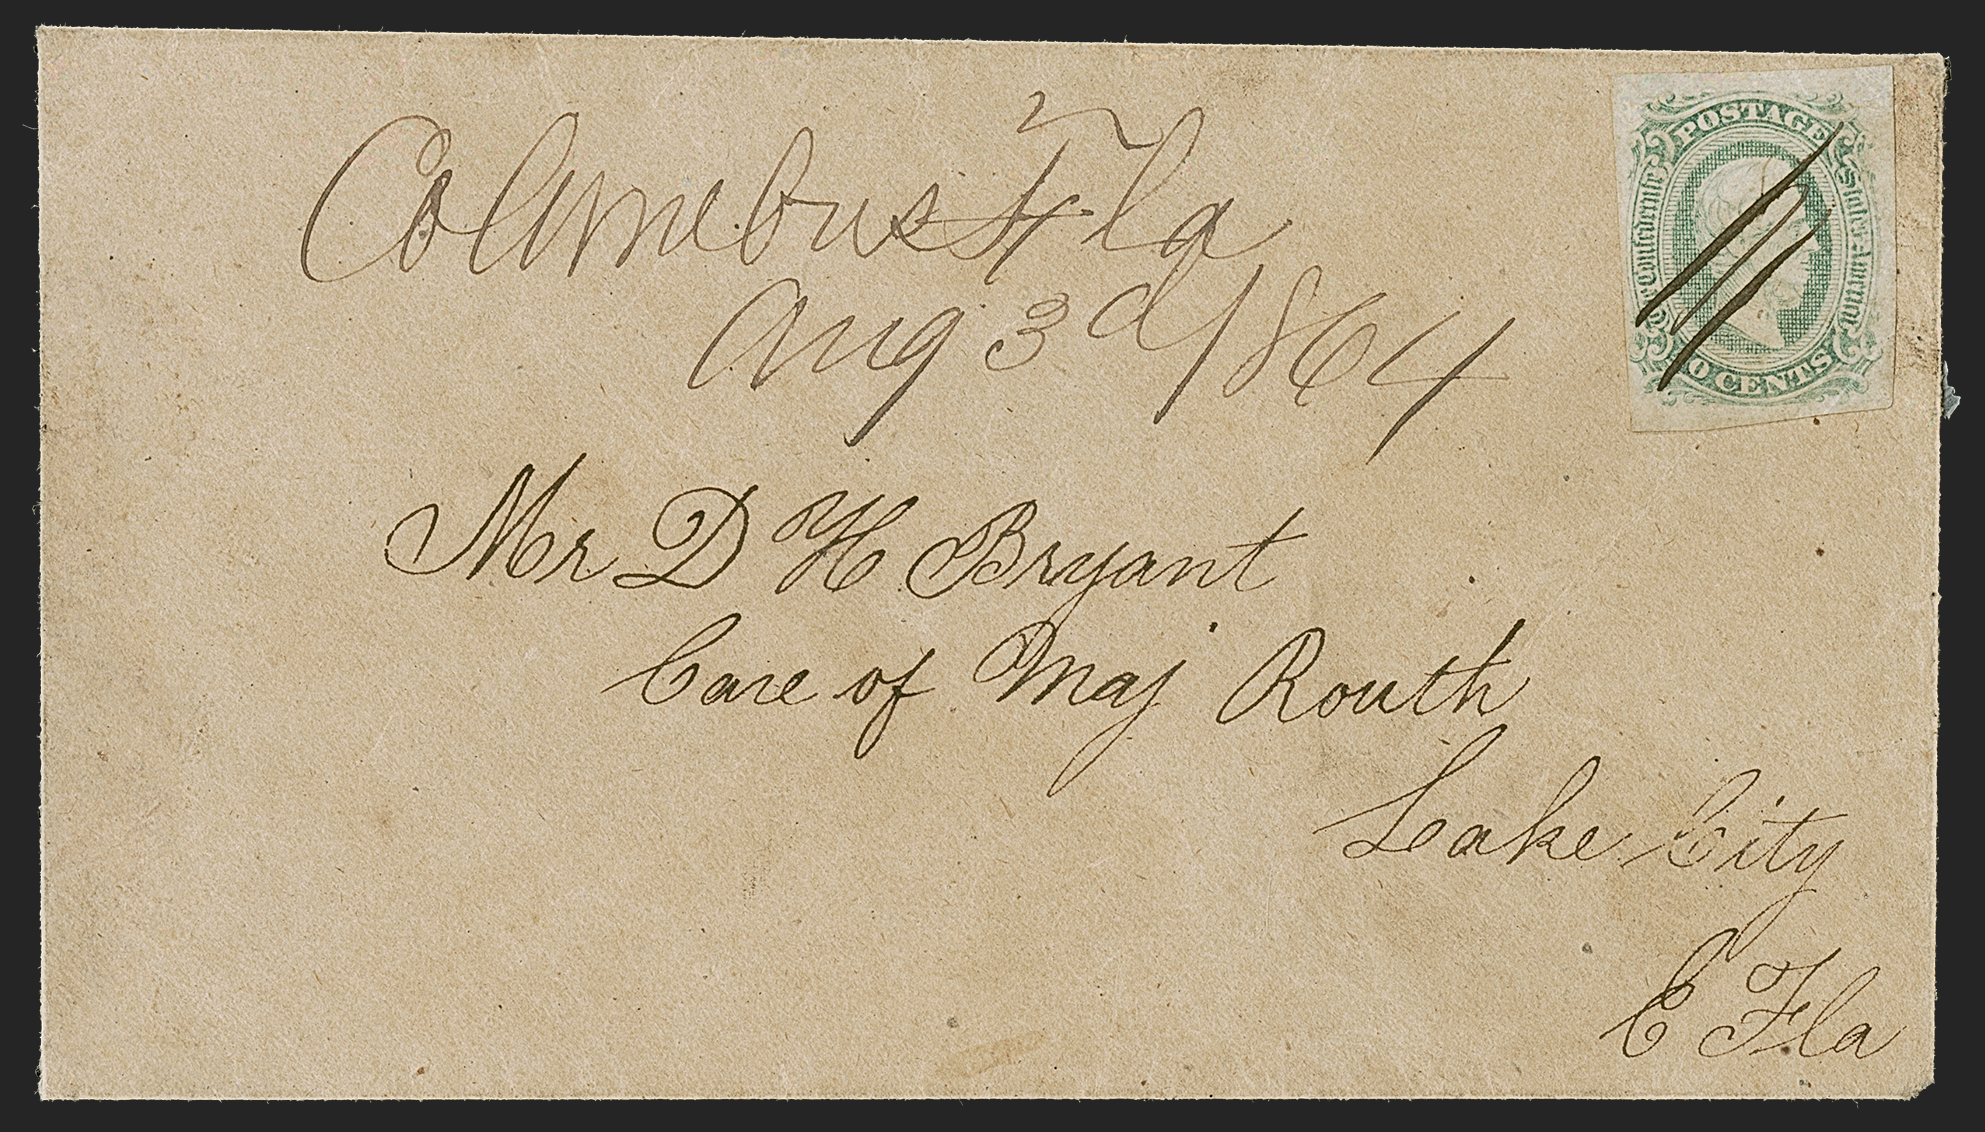 Columebus Fla
Aug 3d 1864
POSTAGE
Confederate
States America
CENTS
Mr D H Bryant
Care of Maj Routh
Lake City
E Fla